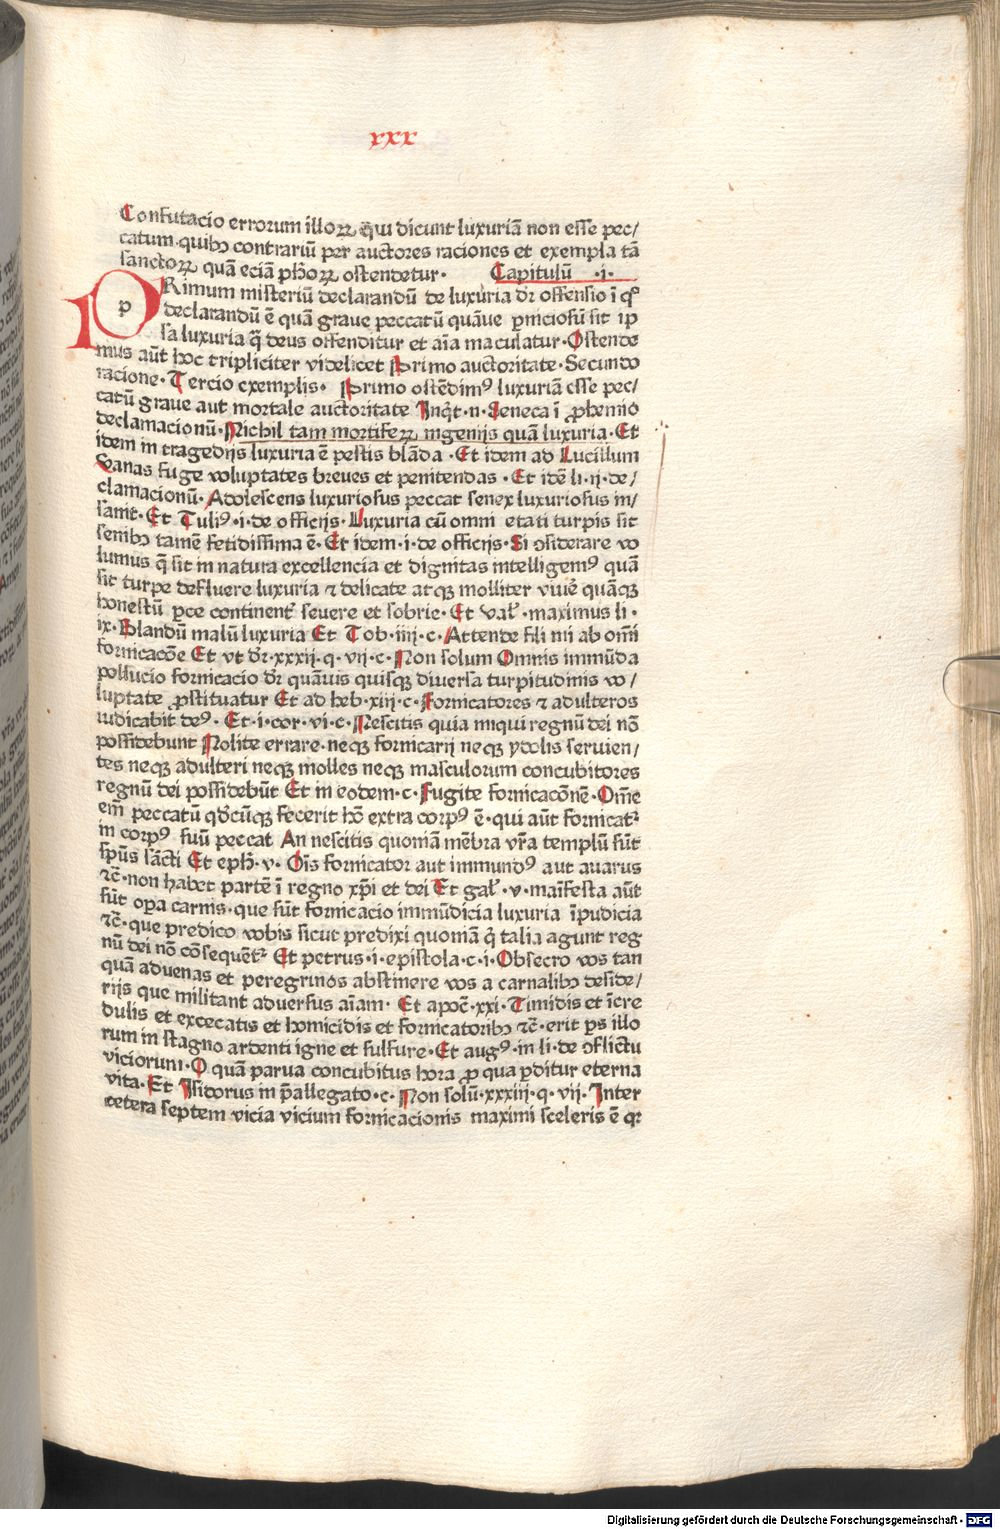 xxx
Confutacio errorum illoꝝ qui dicunt luxuriā non esse pec/
catum·quibꝫ contrariū per auctores raciones et exempla tā
sanctoꝝ quā eciā ph̄oꝝ ostendetur· Capitulū ·i·
PRimum misteriū declarandū de luxuria dr̄ offensio ī qͦ
declarandū ē quā graue peccatū quāue ꝑniciosū sit ip
sa luxuria q̄ deus offenditur et aīa maculatur·Ostende
mus aūt hoc tripliciter videlicet Primo auctoritate·Secundo
racione·Tercio exemplis· Primo ostēdimꝰ luxuriā esse pec/
catū graue aut mortale auctoritate Inq̄t·n·Seneca ī ꝓhemio
declamacionū·Nichil tam mortifeꝝ ingenijs quā luxuria·Et
idem in tragedijs luxuria ē pestis blāda·Et idem ad Lucillum
Vanas fuge voluptates breues et penitendas·Et idē li·ij·de/
clamacionū·Adolescens luxuriosus peccat senex luxuriosus in/
sanit·Et Tuliꝰ·i·de officijs·Luxuria cū omni etati turpis sit
senibꝫ tamē fetidissima ē·Et idem·i·de officijs·Si ꝯsiderare vo
lumus q̄ sit in natura excellencia et dignitas intelligemꝰ quā
sit turpe defluere luxuria ⁊ delicate atqꝫ molliter viuē quāqꝫ
honestū ꝑce continent̄ seuere et sobrie·Et val̄·maximus li·
ix·Blandū malū luxuria Et Tob·iiij·c·Attende fili mi ab om̄i
fornicacōe Et vt dr̄·xxxij·q·vij·c·Non solum Omnis immūda
pollucio fornicacio dr̄ quāuis quisqꝫ diuersa turpitudinis vo/
luptate ꝓstituatur Et ad heb·xiij·c·Fornicatores ⁊ adulteros
iudicabit deꝰ·Et·i·cor·vi·c·Nescitis quia iniqui regnū dei nō
possidebunt Nolite errare·neqꝫ fornicarij neqꝫ ydolis seruien/
tes neqꝫ adulteri neqꝫ molles neqꝫ masculorum concubitores
regnū dei possidebūt Et in eodem·c·Fugite fornicacōnē·Om̄e
em̄ peccatū qd̄cūqꝫ fecerit hō extra corpꝰ ē·qui aūt fornicat̄
in corpꝰ suū peccat An nescitis quoniā mēbra vr̄a templū sūt
sp̄us sācti Et eph·v·Oīs fornicator aut immundꝰ aut auarus
⁊c̄·non habet partē ī regno xp̄i et dei Et gal̄·v·maīfesta aūt
sūt oꝑa carnis·que sūt fornicacio immūdicia luxuria īpudicia
⁊c̄·que predico vobis sicut predixi quoniā q̄ talia agunt reg
nū dei nō cōsequēt̄ Et petrus·i·epistola·c·i·Obsecro vos tan
quā aduenas et peregrinos abstinere vos a carnalibꝫ deside/
rijs que militant aduersus aīam·Et apoc̄·xxi·Timidis et īcre
dulis et excecatis et homicidis et fornicatoribꝫ ⁊c̄·erit ꝑs illo
rum in stagno ardenti igne et sulfure·Et augꝰ·in li·de ꝯflictu
viciorum·O quā parua concubitus hora ꝓ qua ꝑditur eterna
vita·Et Isidorus in p̄allegato·c·Non solū·xxxiij·q·vij·Inter
cetera septem vicia vicium fornicacionis maximi sceleris ē qꝛ
Digitalisierung gefördert durch die Deutsche Forschungsgemeinschaft - DFG